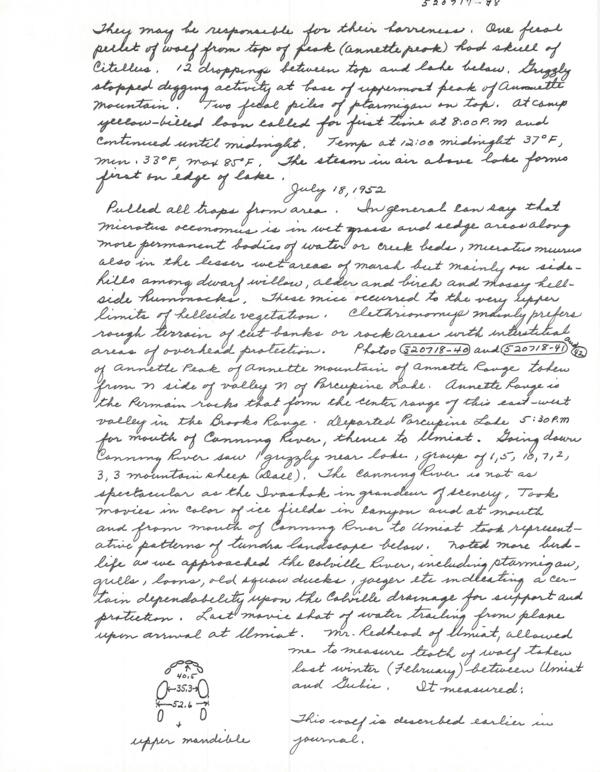 520717-48
They may be responsible for their barreness. One fecal
pellet of wolf from top of peak (annette peak) had skull of
Citellus. 12 droppings between top and lake below. Grizzly
stopped digging activity at base of uppermost peak of Annette
Mountain. Two fecal piles of ptarmigan on top. At camp
yellow-billed loon called for first time at 8:00 P.M and
continued until midnight. Temp at 12:00 midnight 37°F,
min. 33°F, max 85°F. The steam in air above lake forms
first on edge of lake.
July 18, 1952
Pulled all traps from area. In general can say that
microtus oeconomus is in wet grass and sedge areas along
more permanent bodies of water or creek beds, microtus miurus
also in the lesser wet areas of marsh but mainly on side-
hills among dwarf willow, alder and birch and mossy hill-
side hummocks. These mice occurred to the very upper
limits of hillside vegetation. Clethrionomys mainly prefers
rough terrain of cut banks or rock areas with interstitial
areas of overhead protection. Photos 520718-40 and 520718-41 and 42
of Annette Peak of Annette mountain of Annette Range taken
from N side of valley N of Porcupine Lake. Annette Range is
the Permain rocks that form the center range of this east-west
valley in the Brooks Range. Departed Porcupine Lake 5:30 P.M
for mouth of Canning River, thence to Umiat. Going down
Canning River saw 1 grizzly near lake, group of 1, 5, 10, 7, 2,
3, 3 mountain sheep (Dall). The Canning River is not as
spectacular as the Ivashok in grandeur of scenery. Took
movies in color of ice fields in canyon and at mouth
and from mouth of Canning River to Umiat took represent-
ative patterns of tundra landscape below. Noted more bird-
life as we approached the Colville River, including ptarmigan,
gulls, loons, old squaw ducks, jaeger etc indicating a cer-
tain dependability upon the Colville drainage for support and
protection. Last movie shot of water trailing from plane
upon arrival at Umiat. Mr. Redhead of Umiat, allowed
me to measure teeth of wolf taken
last winter (February) between Umiat
and Gubic. It measured:
40.5
35.3
52.6
This wolf is described earlier in
upper mandible
journal.